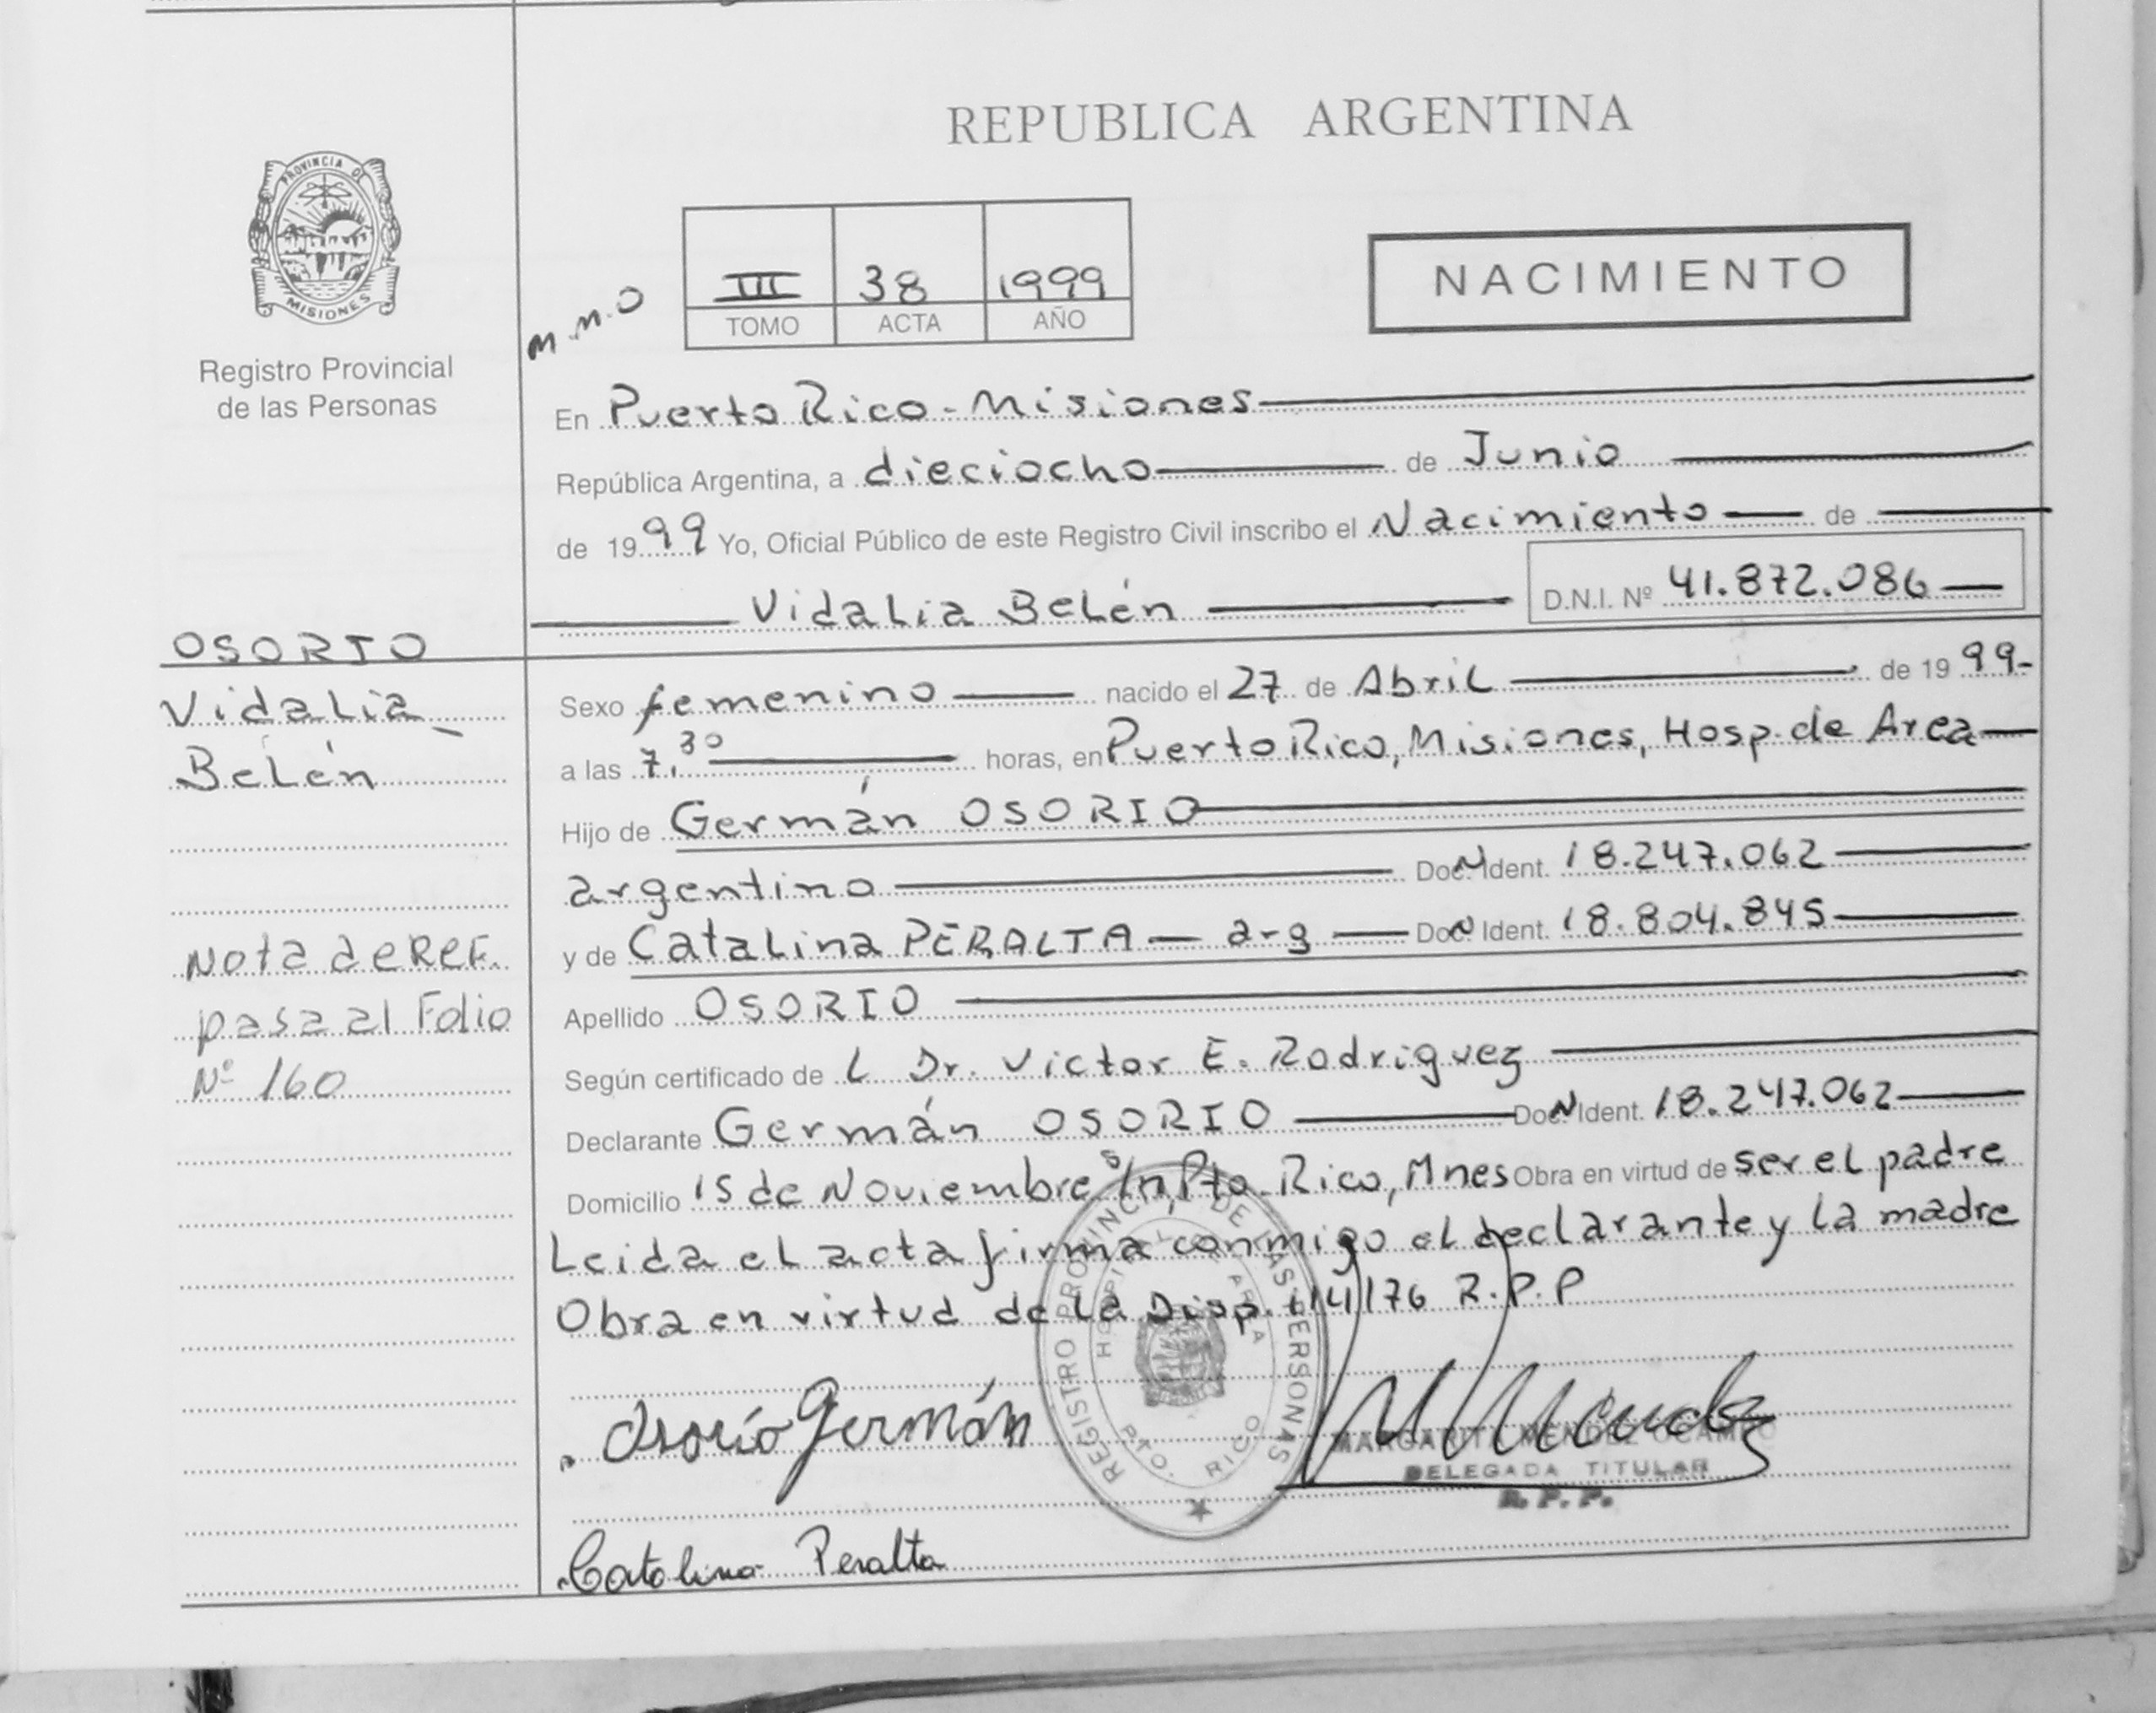 REPUBLICA ARGENTINA
PROVINCIA DE
MISIONES
Registro Provincial
de las Personas
m.m.o
III 38 1999
TOMO ACTA AÑO
NACIMIENTO
En Puerto Rico - Misiones
República Argentina, a dieciocho de Junio
de 1999 Yo, Oficial Público de este Registro Civil inscribo el Nacimiento de
Vidalia Belén D.N.I. Nº 41.872.086
OSORIO
Vidalia
Belén
Nota de REF.
pasa al Folio
Nº 160
Sexo femenino nacido el 27 de Abril de 1999-
a las 7,30 horas, en Puerto Rico, Misiones, Hosp. de Area
Hijo de Germán OSORIO
argentino Doc. N Ident. 18.247.062
y de Catalina PERALTA - arg Doc. N Ident. 18.804.845
Apellido OSORIO
Según certificado de L Dr. Victor E. Rodriguez
Declarante Germán OSORIO Doc. N Ident. 18.247.062
Domicilio 15 de Noviembre s/n, Pto. Rico, Mnes Obra en virtud de ser el padre
Leida el acta firma conmigo el declarante y la madre
Obra en virtud de la Disp. 114/76 R.P.P
Osorio Germán
REGISTRO PROVINCIAL DE LAS PERSONAS
HOSPITAL DE AREA
PTO. RICO
MARGARITA MENDEZ OCAMPO
DELEGADA TITULAR
R. P. P.
Catalina Peralta